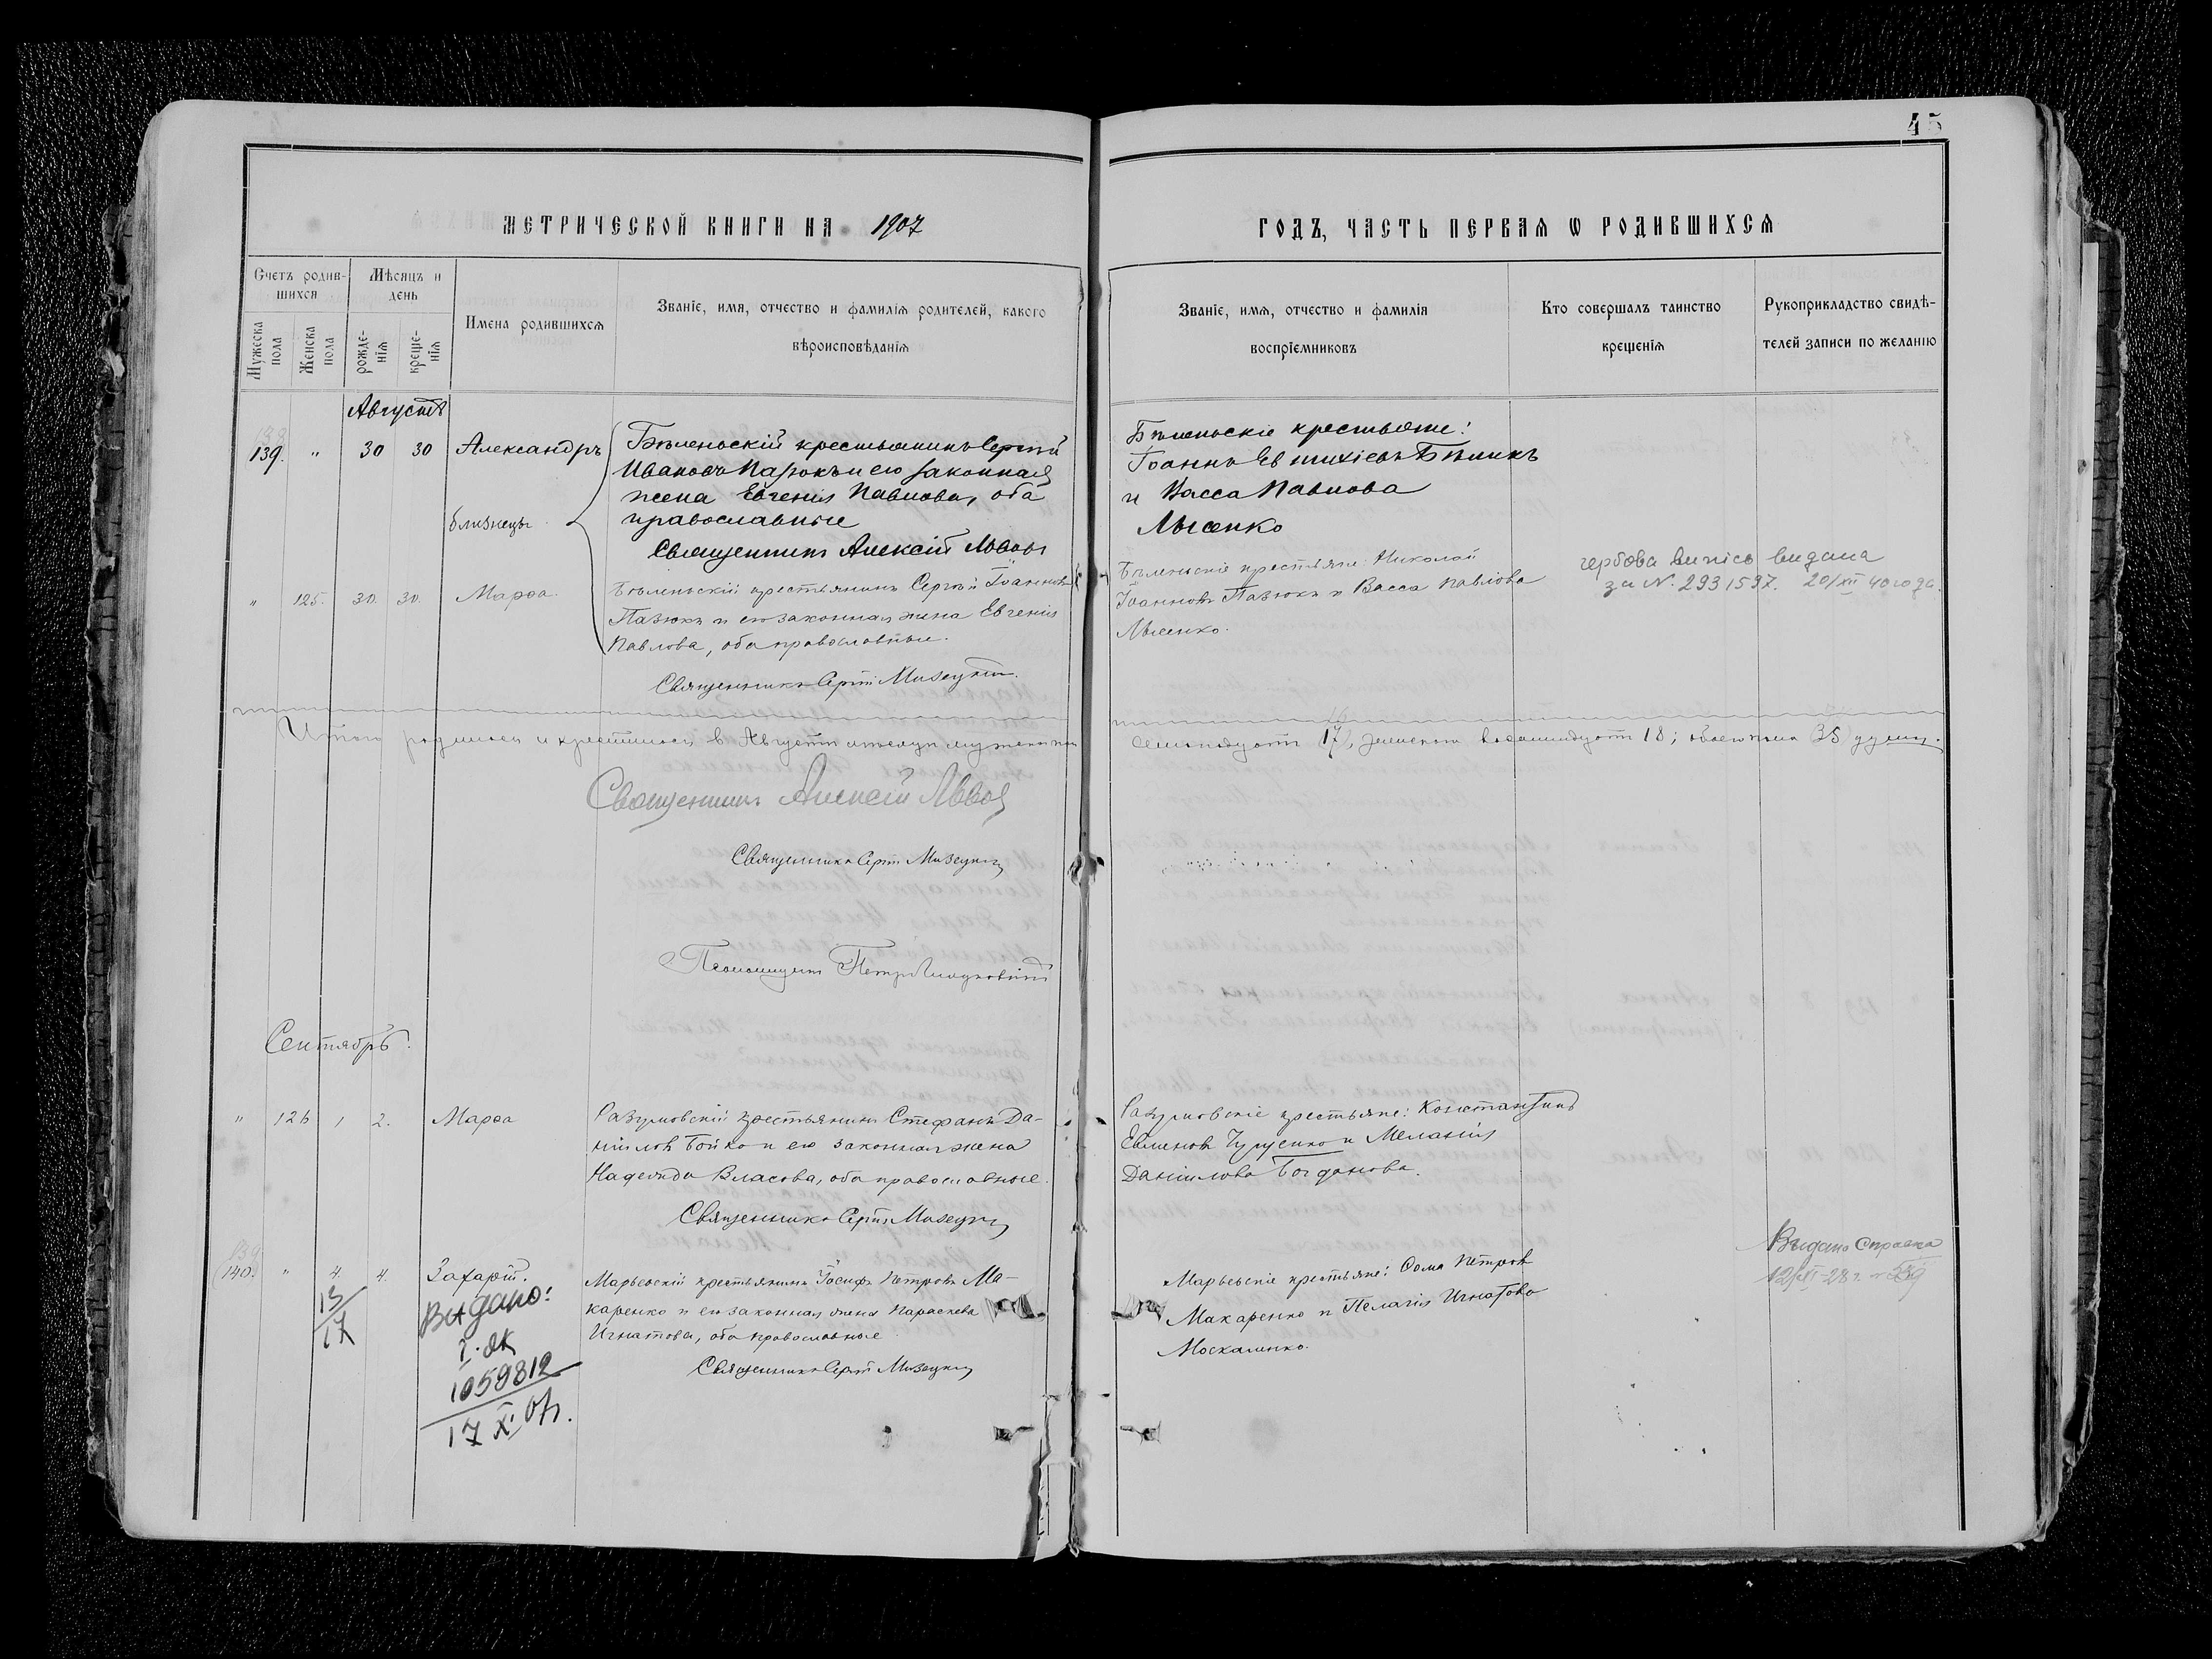 45
МЕТРИЧЕСКОЙ КНИГИ НА 1907
ГОДЪ, ЧАСТЬ ПЕРВАЯ Ѡ РОДИВШИХСЯ
Счетъ родив-
шихся
Мѣсяцъ и
день
Мужеска пола
Женска пола
рожде-
нія
креще-
нія
Имена родившихся
Званіе, имя, отчество и фамилія родителей, какого
вѣроисповѣданія
Званіе, имя, отчество и фамилія
воспріемниковъ
Кто совершалъ таинство
крещенія
Рукоприкладство свидѣ-
телей записи по желанію
Августъ
139. " 30 30 Александръ
Бѣленьскій крестьянинъ Сергѣй
Ивановъ и его законная
жена Евгенія Павлова, оба
православные
Священникъ Алексій Львовъ
Бѣленьскіе крестьяне:
Іоаннъ Евтихіевъ Бѣликъ
и Васса Павлова
Лысенко
близнецы
" 125. 30. 30. Марѳа.
Бѣленьскій крестьянинъ Сергѣй Іоанновъ
Пазюкъ и его законная жена Евгенія
Павлова, оба православные.
Священникъ Сергій
Бѣленьскіе крестьяне: Николай
Іоанновъ Пазюкъ и Васса Павлова
Лысенко.
гербова випись видана
за N. 2931597. 20/XII 40 года.
Итого родилось и крестилось въ Августѣ мѣсяцѣ мужеска пола
семнадцать 17, женска восемнадцать 18; обоего пола 35 душъ.
Священникъ Алексій Львовъ
Священникъ Сергій
Псаломщикъ Петръ
Сентябрь.
" 126 1 2. Марѳа
Разумовскій крестьянинъ Стефанъ Да-
ніиловъ Бойко и его законная жена
Надежда Власова, оба православные.
Священникъ Сергій
Разумовскіе крестьяне: Константинъ
Евменовъ и Меланія
Даніилова Богданова.
139
140. " 4. 4. Захарій.
Марьевскій крестьянинъ Іосифъ Петровъ Ма-
каренко и его законная жена Параскева
Игнатова, оба православные
Священникъ Сергій
Марьевскіе крестьяне: Ѳома Петровъ
Макаренко и Пелагія Игнатова
Москаленко.
Выдана Справка
13/17
Выдано:
1059812
17 X